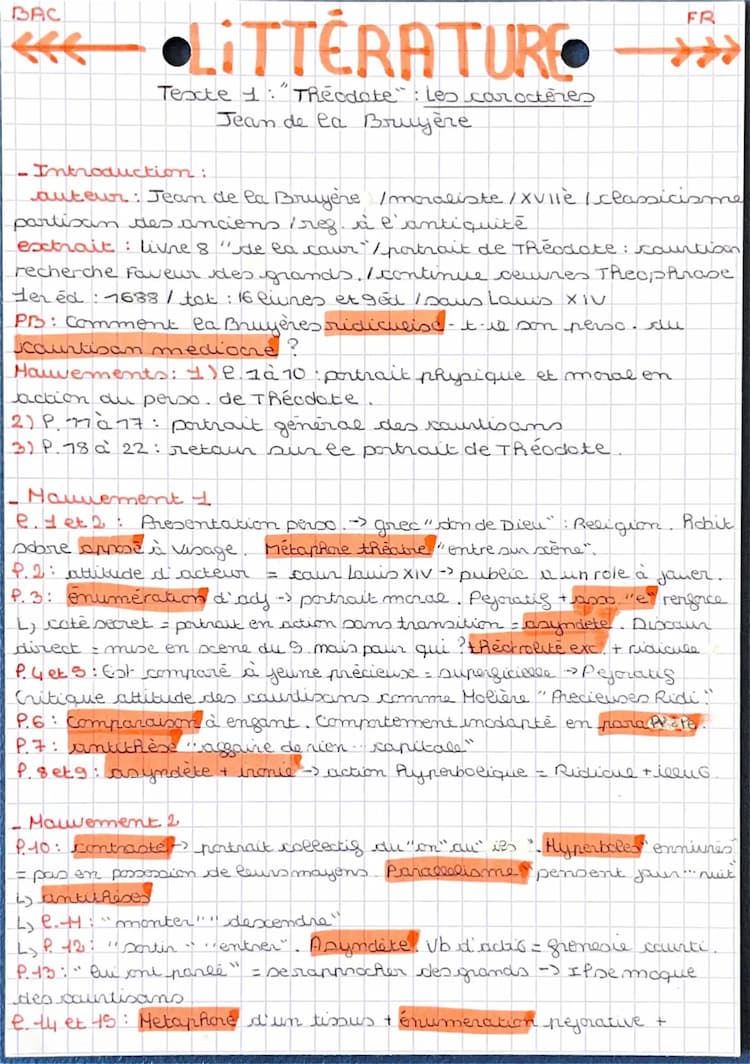 BAC FR
LiTTÉRATURE
Texte 1 : "Théodote" : Les caractères
Jean de la Bruyère
- Introduction :
auteur : Jean de la Bruyère / moraliste / XVIIè / classicisme
partisan des anciens / ref. à l'antiquité
extrait : livre 8 "de la cour" / portrait de Théodote : courtisan
recherche faveur des grands. / continue oeuvres Théophrase
1er éd : 1688 / tot : 16 livres et 9éd / sous Louis XIV
PB : Comment la Bruyères ridiculise-t-il son perso. du
courtisan mediocre ?
Mouvements : 1) l. 1 à 10 : portrait physique et moral en
action du perso. de Théodote.
2) P. 11 à 17 : portrait général des courtisans
3) P. 18 à 22 : retour sur le portrait de Théodote.
- Mouvement 1
l. 1 et 2 : Presentation perso. -> grec "don de Dieu" : Religion. Habit
sobre opposé à visage. Métaphore théatre "entre sur scène".
P. 2 : attitude d'acteur = cour Louis XIV -> public a un role à jouer.
P. 3 : énumération d'adj -> portrait moral. Pejoratif + asso. "e" renforce
L> coté secret = portrait en action sans transition = asyndète. Discour
direct = mise en scene du S. mais pour qui ? théatralité exc. + ridicule
P. 4 et 5 : Est comparé à jeune précieuse = superficielle -> Pejoratif
Critique attitude des courtisans comme Molière "Precieuses Ridi."
P. 6 : Comparaison à enfant. Comportement inadapté en
P. 7 : antithèse "affaire de rien ... capitale"
P. 8 et 9 : asyndète + ironie -> action hyperbolique = Ridicul +
- Mouvement 2
P. 10 : contraste -> portrait collectif du "on" au "ils". Hyperboles "ennivrés"
= pas en possession de leurs moyens. Parallelisme "pensent jour ... nuit"
L> antithèses
L> l. 11 : "monter" "descendre"
L> P. 12 : "sortir" "entrer". Asyndète. Vb d'actio = frenesie courti.
P. 13 : "lui ont parlé" = se rapprocher des grands -> IP se moque
des courtisans
l. 14 et 15 : Metaphore d'un tissus + énumeration péjorative +